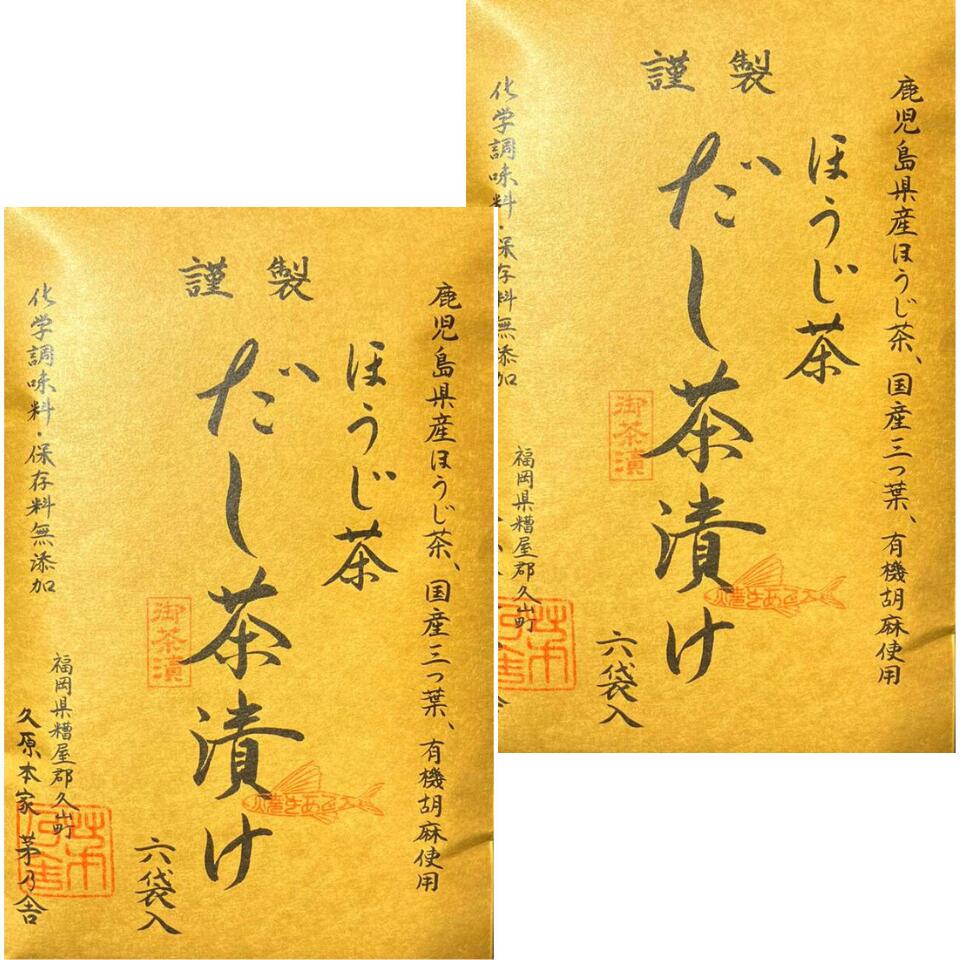 謹製
鹿児島県産ほうじ茶、国産三つ葉、有機胡麻使用
ほうじ茶
だし茶漬け
焼きあご入
六袋入
御茶漬
化学調味料・保存料無添加
福岡県糟屋郡久山町
久原本家 茅乃舎
茅乃舎
謹製
鹿児島県産ほうじ茶、国産三つ葉、有機胡麻使用
ほうじ茶
だし茶漬け
焼きあご入
六袋入
御茶漬
化学調味料・保存料無添加
福岡県糟屋郡久山町
舎